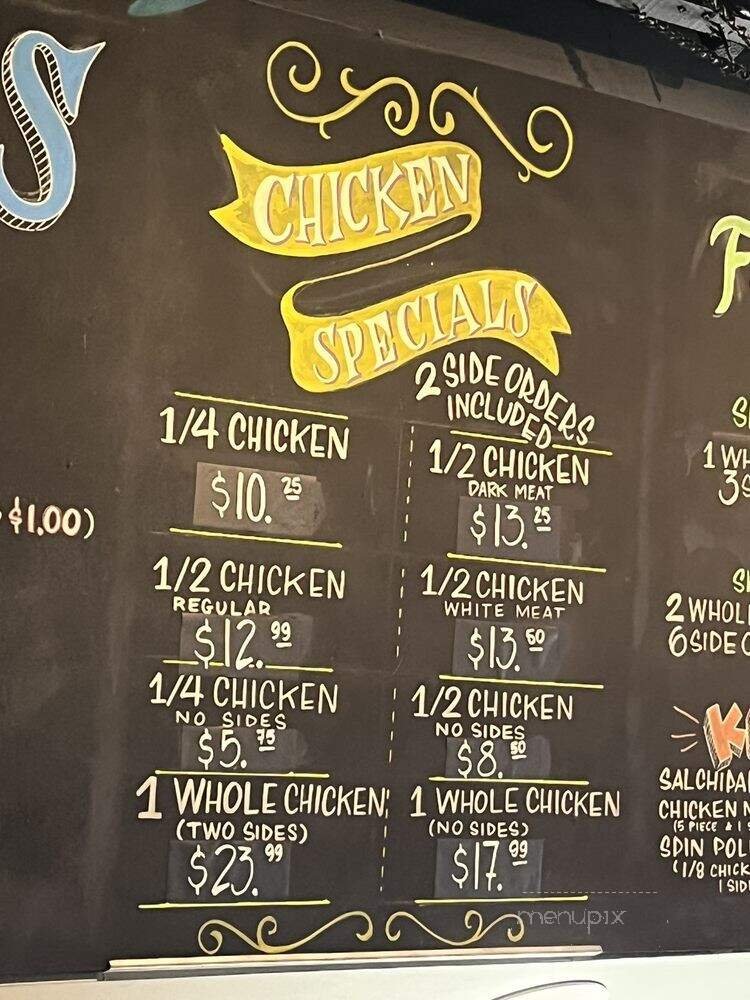 S
CHICKEN
SPECIALS
2 SIDE ORDERS
INCLUDED
1/4 CHICKEN
$10.25
1/2 CHICKEN
REGULAR
$12.99
1/4 CHICKEN
NO SIDES
$5.75
1 WHOLE CHICKEN
(TWO SIDES)
$23.99
1/2 CHICKEN
DARK MEAT
$13.25
1/2 CHICKEN
WHITE MEAT
$13.50
1/2 CHICKEN
NO SIDES
$8.50
1 WHOLE CHICKEN
(NO SIDES)
$17.99
$1.00)
F
1 WH
3 S
2 WHOL
6 SIDE O
K
SALCHIPA
CHICKEN N
(5 PIECE & 1 S
SPIN POL
(1/8 CHICK
1 SID
menupix